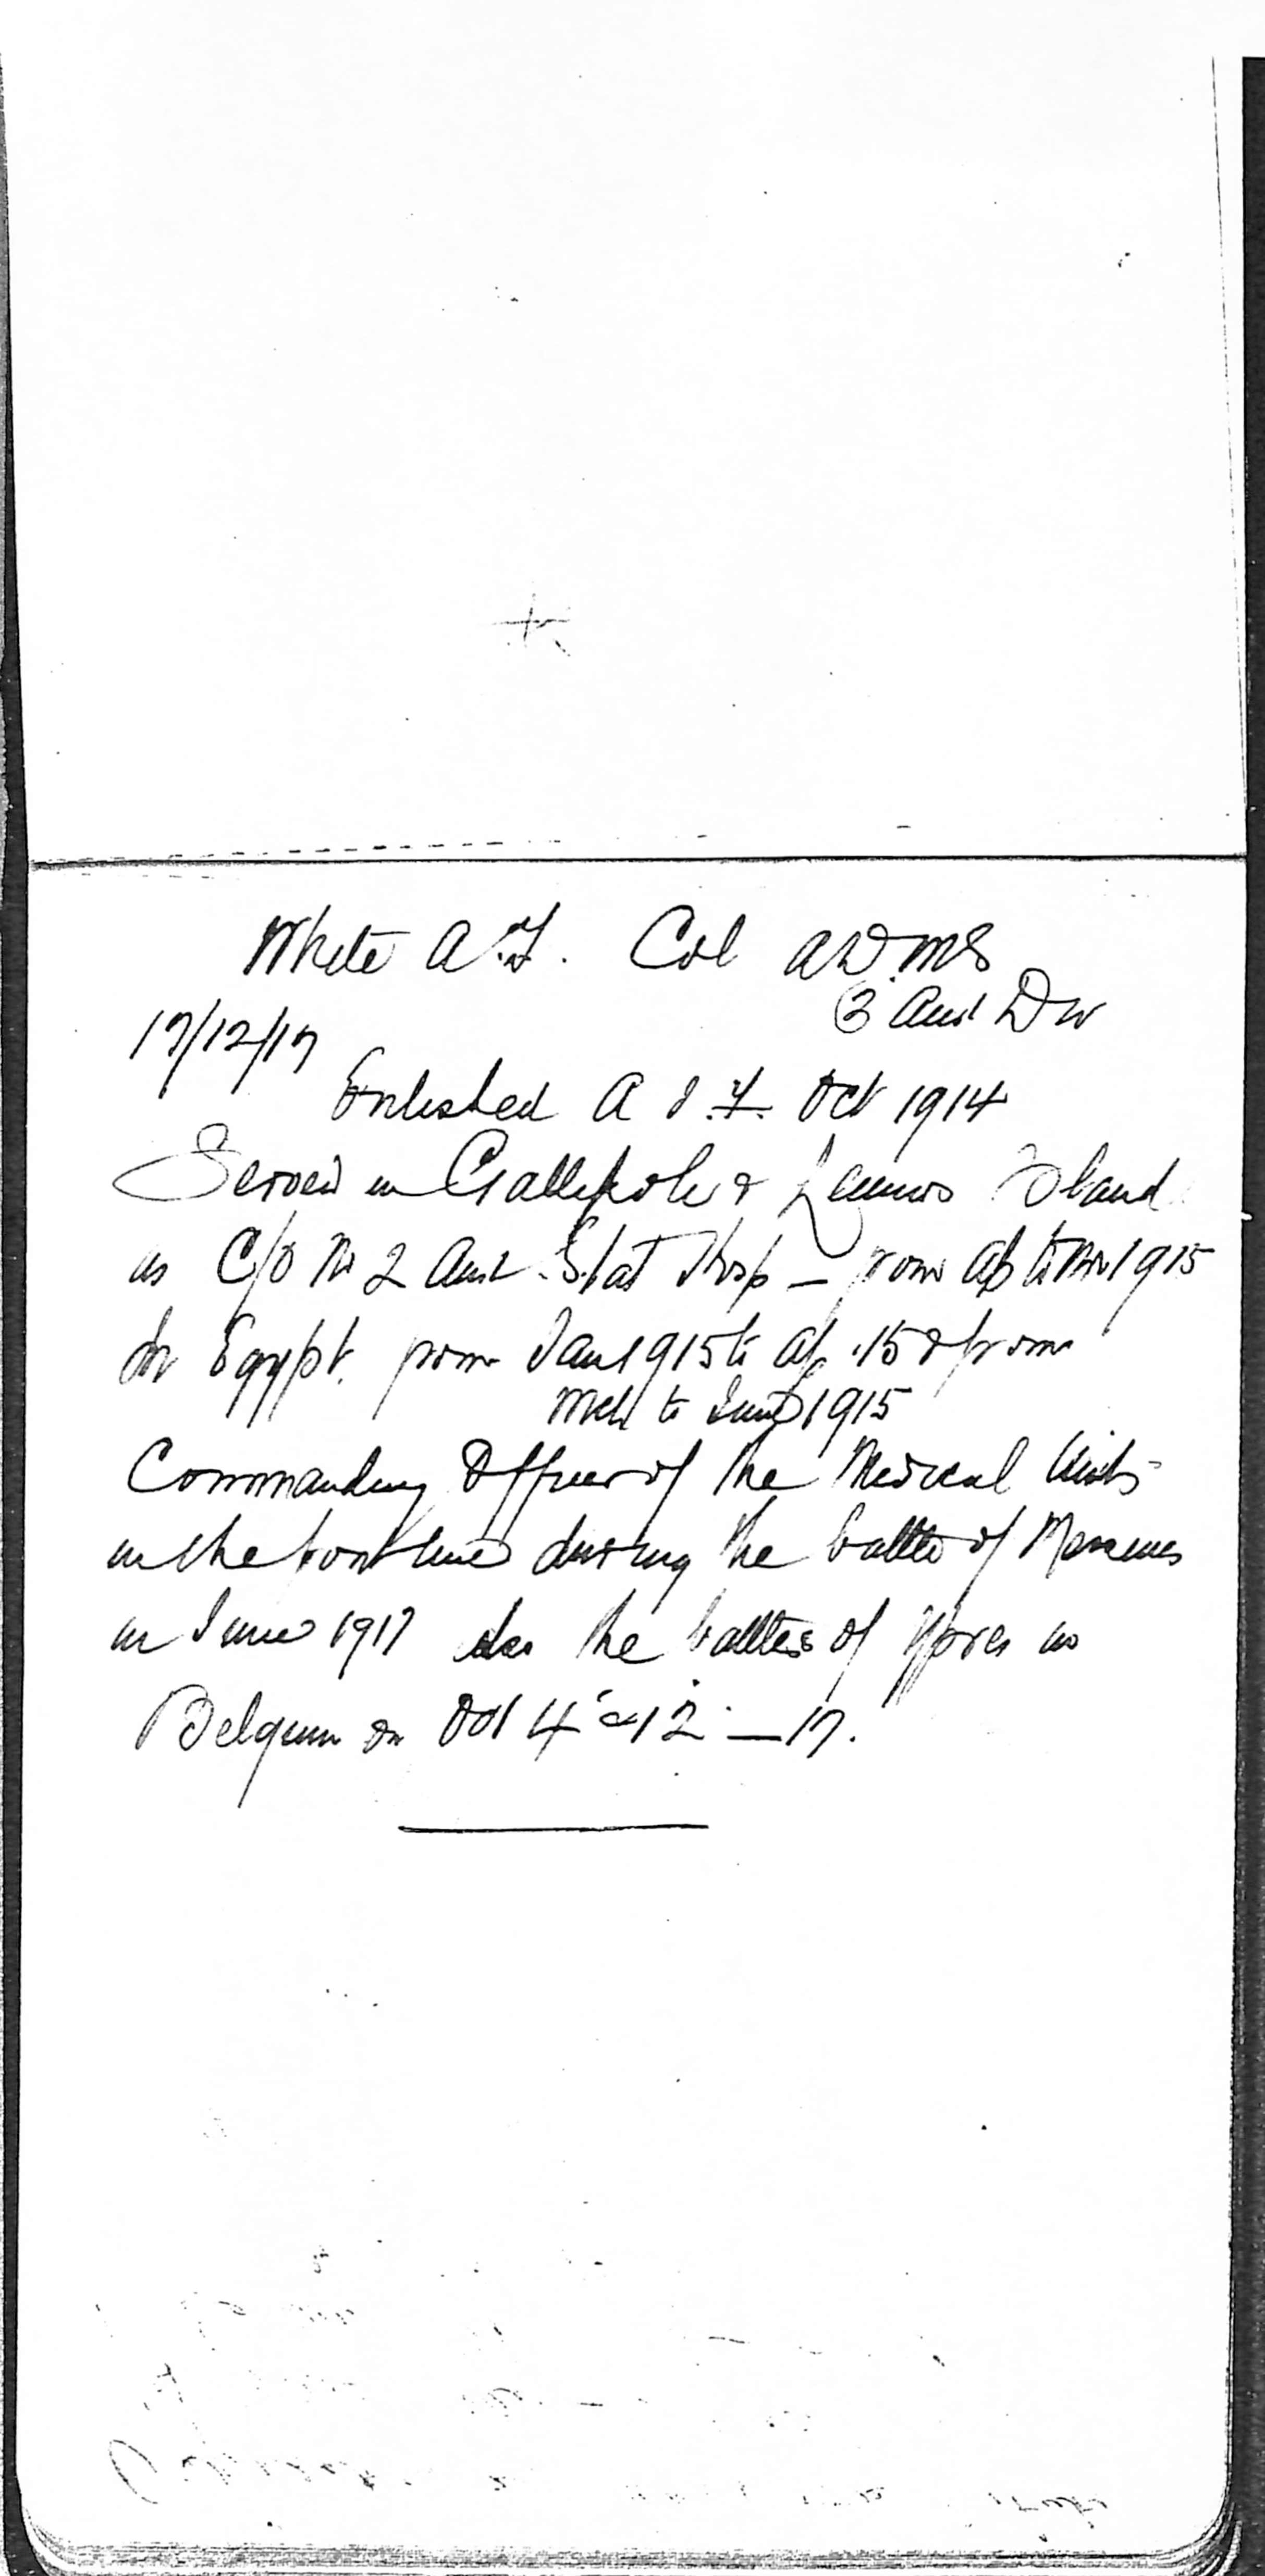 White A.T. Col ADMS
3 Aust Div
17/12/17
Enlisted A I.F. Oct 1914
Served in Gallipoli & Lemnos Island
as C/O No 2 Aust Stat Hosp — from Ap to Nov 1915
In Egypt from Jan 1915 to Ap .15 & from
Mch to June 1915
Commanding Officer of the Medical Units
in the front line during the battle of Messines
in June 1917 the battles of Ypres in
Belgium on Oct 4 & 12 — 17.